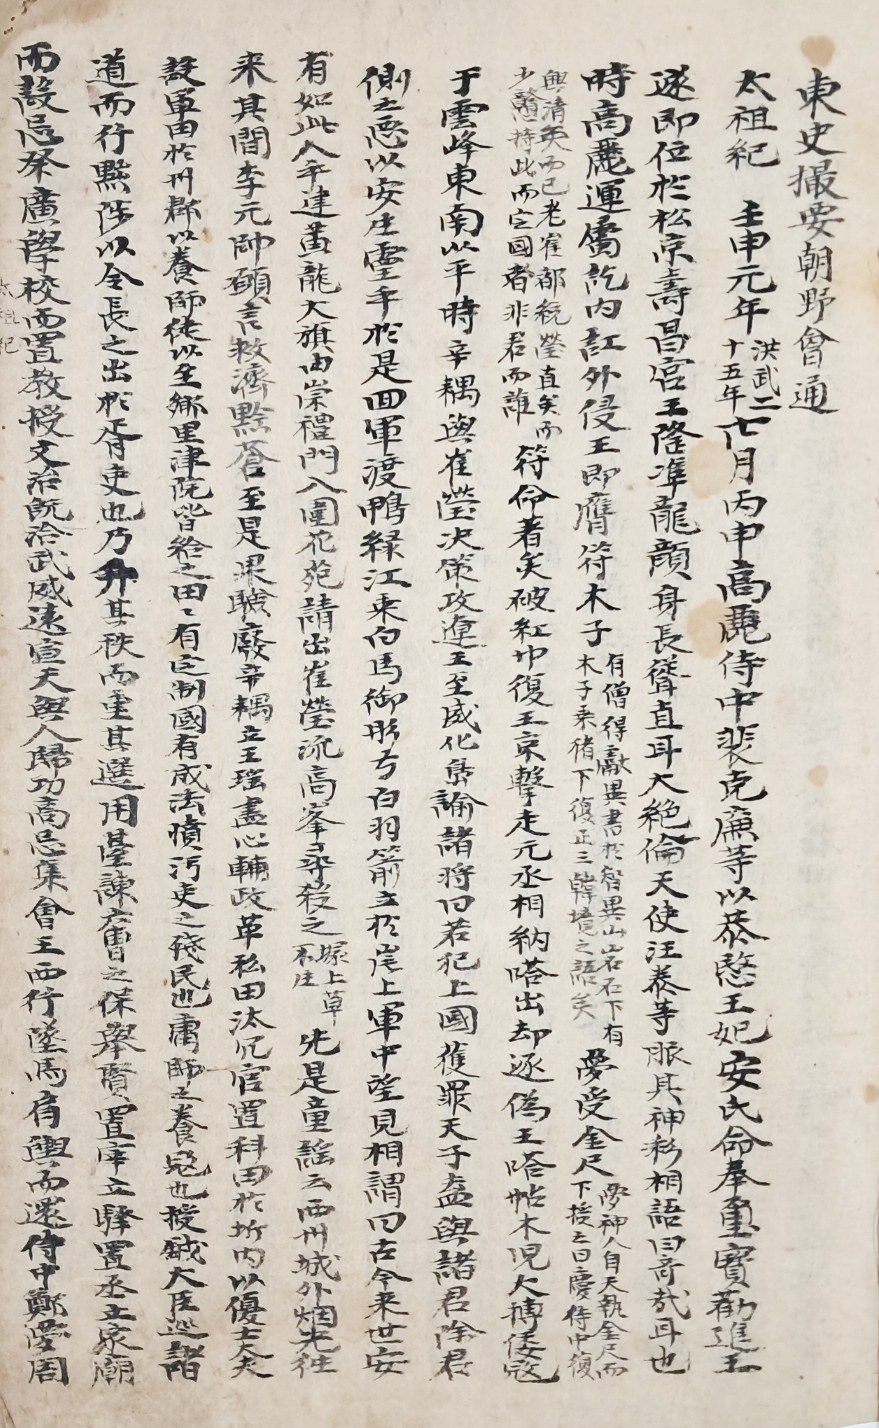 東史撮要朝野會通
太祖紀 壬申元年洪武二十五年七月丙申高麗侍中裴克廉等以恭愍王妃安氏命奉璽寶勸進王
遂即位於松京壽昌宮王隆準龍顔身長聳直耳大絶倫天使汪泰等服其神彩相語曰奇哉耳也
時高麗運屬訖內訌外侵王即膺符木子有僧得獻異書於智異山岩石下有木子乘猪下復正三韓境之語矣夢受金尺夢神人自天執金尺而下授之曰慶侍中復
興清矣而已老崔都統瑩直矣而少戇持此而定國者非君而誰符命著矣破紅巾復王京擊走元丞相納嗒出却逐僞王嗒帖木兒大搏倭寇
于雲峰東南以平時辛耦與崔瑩决策攻遼王至威化島諭諸將曰若犯上國獲罪天子盍與諸君除君
側之惡以安生靈乎於是回軍渡鴨緑江乘白馬御彤弓白羽箭立於崖上軍中望見相謂曰古今來世安
有如此人乎建黃龍大旗由崇禮門入圍花苑請出崔瑩流高峯尋殺之塚上草不生先是童謠云西州城外烟光往
来其間李元帥願言救濟黔蒼至是果驗廢辛耦立王瑤盡心輔政革私田汰冗官置科田於圻內以優士大夫
設軍田於州郡以養師徒以至鄉里津院皆給之田〻有定制國有成法憤汚吏之殘民也庸師之養寇也授鉞大臣巡諸
道而行黜陟以令長之出於胥吏也乃升其秩而重其選用臺諫六曹之保擧賢置宰立驛置丞立家廟
而設忌祭廣學校而置教授文治旣洽武威遠宣天與人歸功高忌集會王西行墜馬肩輿而還侍中鄭夢周
太祖紀